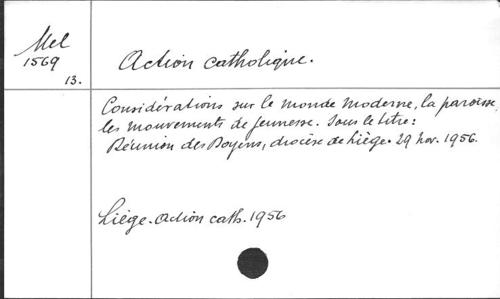 Mel
1569
13.
Action catholique.
Considérations sur le monde moderne, la paroisse,
les mouvements de jeunesse. Sous le titre:
Réunion des Doyens, diocèse de Liège. 29 nov. 1956.
Liège. Action cath. 1956